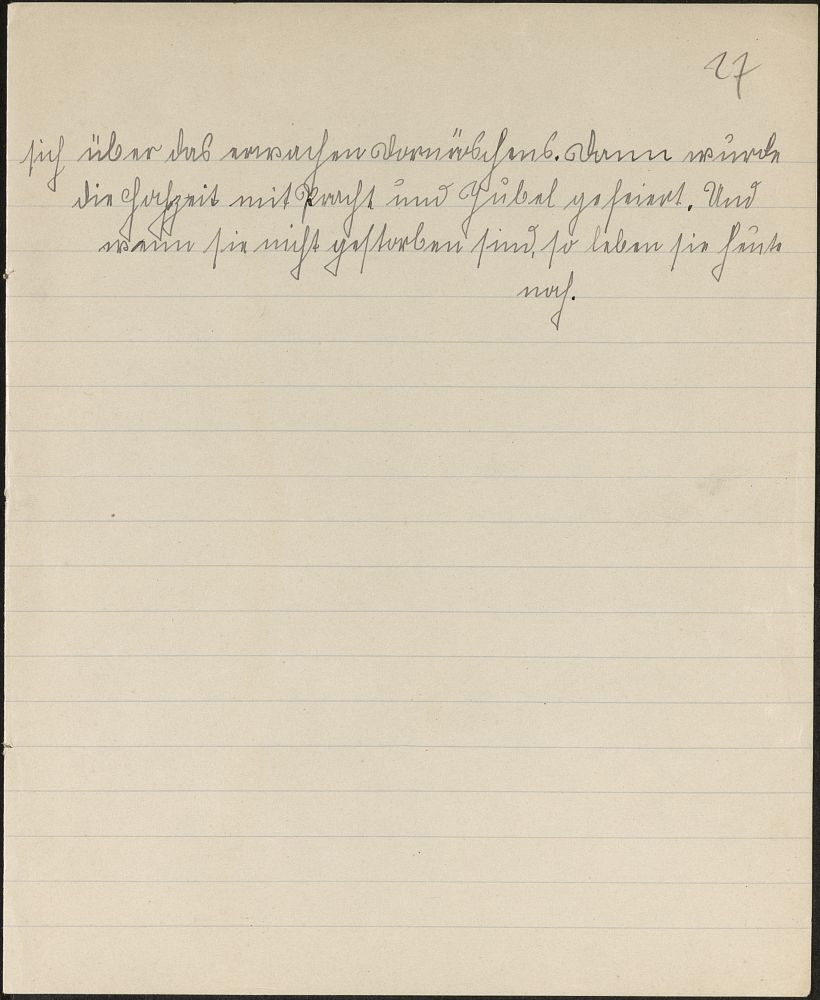 27
sich über das erwachen Dornröschens. Dann wurde
die Hochzeit mit Pracht und Jubel gefeiert. Und
wenn sie nicht gestorben sind, so leben sie heute
noch.